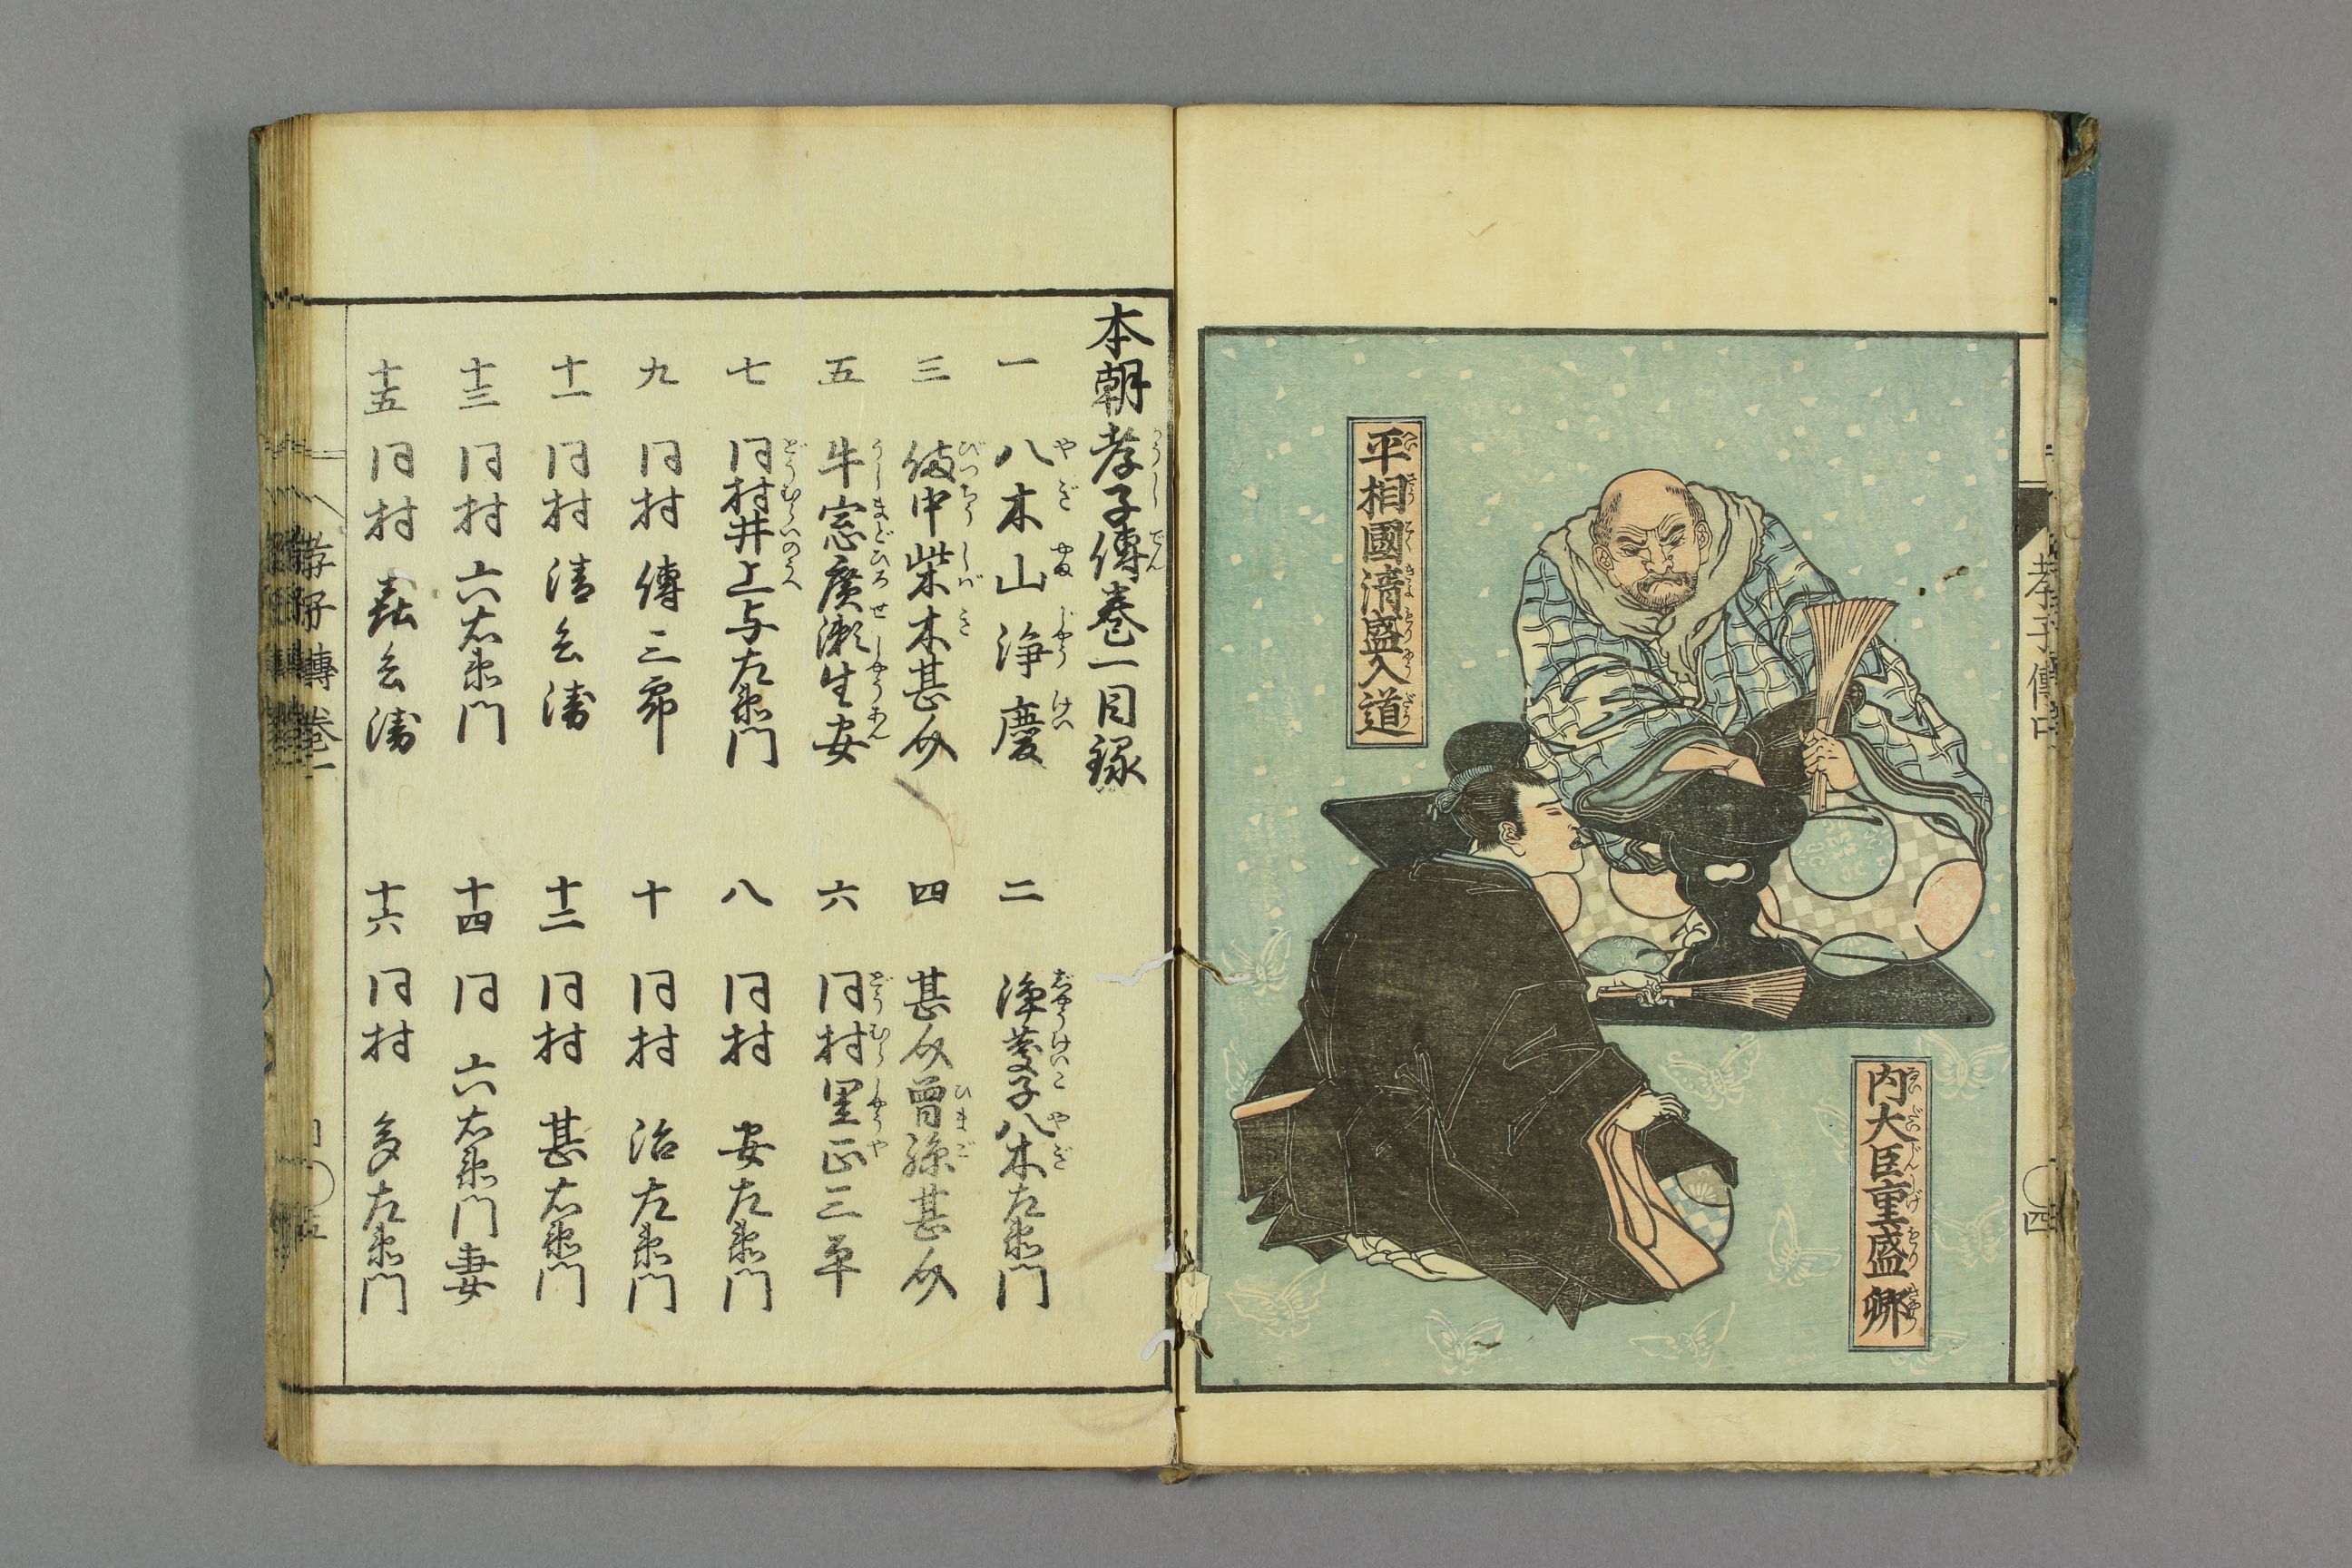 平相國清盛入道
内大臣重盛卿
孝子傳
四
本朝孝子傳巻一目録
一 八木山浄慶
二 浄慶子八木左衛門
三 備中柴木甚介
四 甚介曾孫甚介
五 牛窓廣瀬生安
六 同村里正三平
七 同村井上与左衛門
八 同村 安左衛門
九 同村 傳三郎
十 同村 治左衛門
十一 同村 清兵衛
十二 同村 甚右衛門
十三 同村 六右衛門
十四 同 六右衛門妻
十五 同村 兵衛
十六 同村 多左衛門
孝子傳 巻一